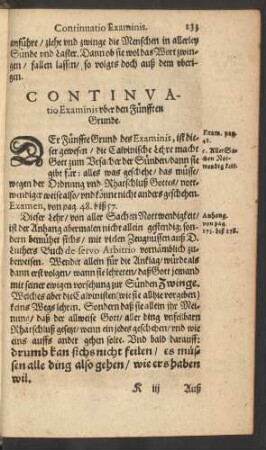 Continuatio Examinis. 133
anführe / ziehe vnd zwinge die Menschen in allerley
Sünde vnd Laster. Dann ob sie wol das Wort zwin-
gen / fallen lassen / so volgts doch auß dem vbri-
gen.
CONTINVA-
tio Examinis vber den Fünfften
Grunde.
DEr Fünffte Grund des Examinis, ist die-
ser gewesen / die Calvinische Lehre macht
Gott zum Vrsacher der Sünden / dann sie
gibt für: alles was geschehe / das müsse /
wegen der Ordnung vnd Rhatschluß Gottes / not-
wendiger weise also / vnd könne nicht anders geschehen.
Examen, von pag. 48. biß 57.
Exam. pag.
48.
1. Aller Sa-
chen Not-
wendig keit.
Dieser Lehr / von aller Sachen Nottwendigkeit /
ist der Anhang abermalen nicht allein gestendig; son-
dern bemühet sich / mit vielen Zeugnüssen auß D.
Luthers Buch de servo Arbitrio vornämblich zu-
beweisen. Wendet allein für die Anklag / würde als
dann erst volgen / wann sie lehreten / daß Gott jemand
mit seiner ewigen vorsehung zur Sünden Zwinge.
Welches aber die Calvinisten (wie sie allhie vorgeben)
keins Wegs lehren. Sondern daß sie allein jhr Mei-
nung / daß der allweise Gott / aller ding vnfelbarn
Rhatschluß gesetzt / wann ein jedes geschehen / vnd wie
eins auffs ander gehen solte. Vnd bald darauff:
drumb kan sichs nicht feilen / es müs-
sen alle ding also gehen / wie ers haben
wil.
Anhang.
von pag.
171. biß 178.
K iij Auß